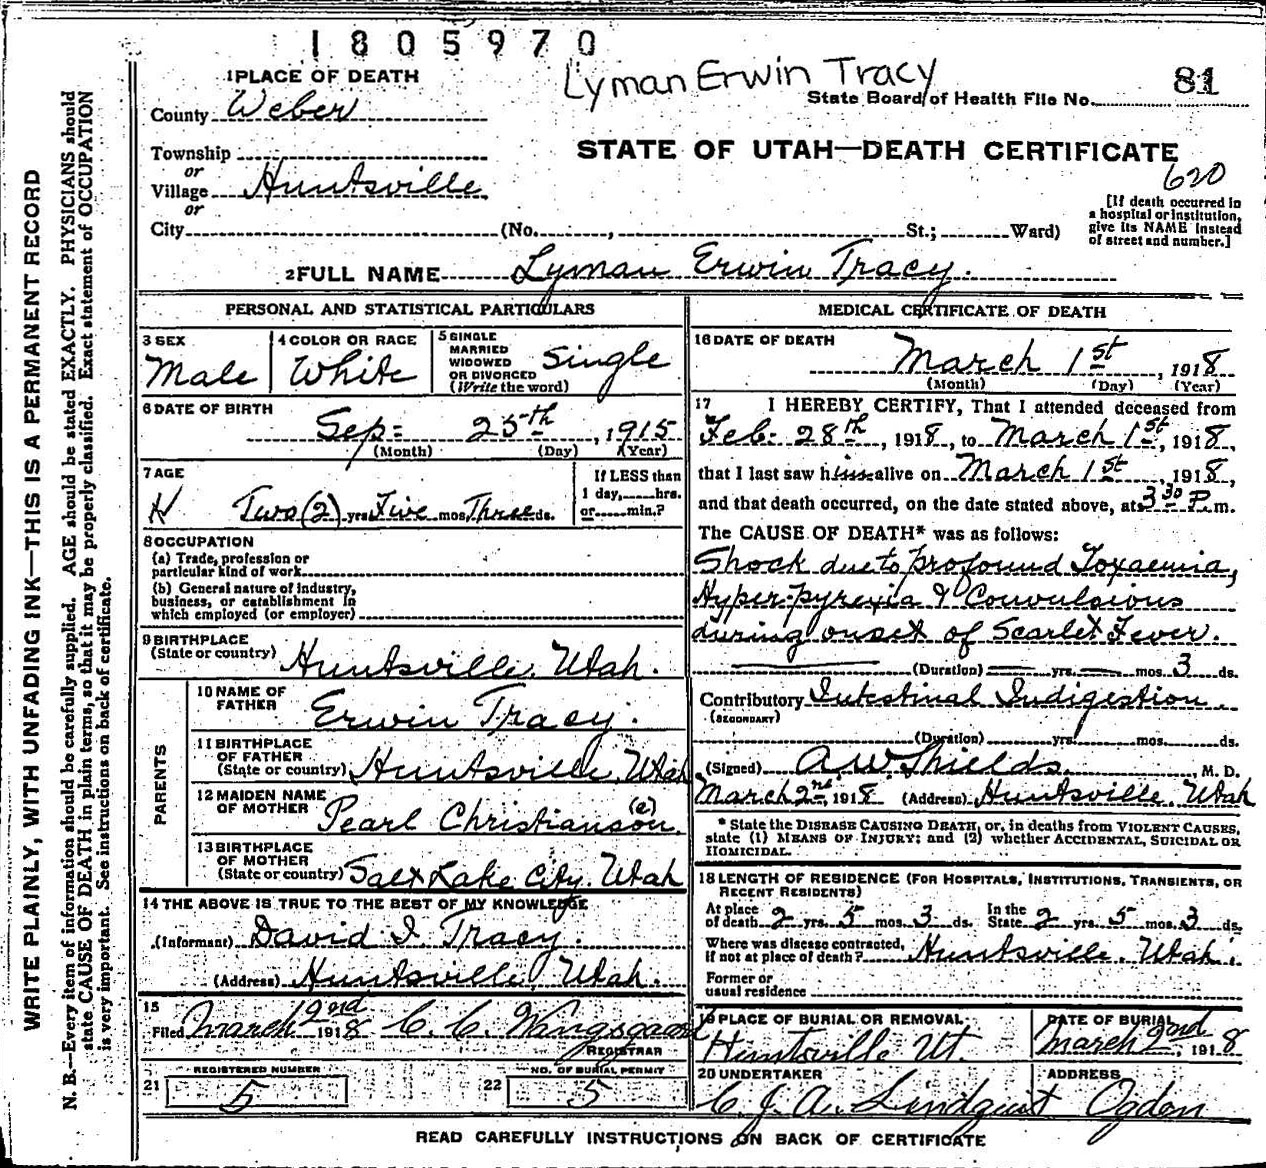 1805970
Lyman Erwin Tracy
81
State Board of Health File No.
1 PLACE OF DEATH
County Weber
STATE OF UTAH—DEATH CERTIFICATE
620
Township
or
Village Huntsville
or
City (No. , St.; Ward)
[If death occurred in
a hospital or institution,
give its NAME instead
of street and number.]
2 FULL NAME Lyman Erwin Tracy.
PERSONAL AND STATISTICAL PARTICULARS
3 SEX
Male
4 COLOR OR RACE
White
5 SINGLE
MARRIED
WIDOWED
OR DIVORCED
(Write the word)
Single
6 DATE OF BIRTH
Sep= 25th, 1915
(Month) (Day) (Year)
7 AGE
Two (2) yrs Five mos Three ds.
If LESS than
1 day, hrs.
or min.?
8 OCCUPATION
(a) Trade, profession or
particular kind of work
(b) General nature of industry,
business, or establishment in
which employed (or employer)
9 BIRTHPLACE
(State or country) Huntsville, Utah.
PARENTS
10 NAME OF
FATHER
Erwin Tracy.
11 BIRTHPLACE
OF FATHER
(State or country) Huntsville, Utah
12 MAIDEN NAME
OF MOTHER
Pearl Christianson. (e)
13 BIRTHPLACE
OF MOTHER
(State or country) Salt Lake City, Utah
14 THE ABOVE IS TRUE TO THE BEST OF MY KNOWLEDGE
(Informant) David I. Tracy.
(Address) Huntsville, Utah.
15
Filed March 2nd 1918 C. C. Wangsgaard
REGISTRAR
REGISTERED NUMBER
21 5
NO. OF BURIAL PERMIT
22 5
MEDICAL CERTIFICATE OF DEATH
16 DATE OF DEATH
March 1st, 1918
(Month) (Day) (Year)
17 I HEREBY CERTIFY, That I attended deceased from
Feb: 28th, 1918, to March 1st, 1918,
that I last saw him alive on March 1st, 1918,
and that death occurred, on the date stated above, at 3 30 P. m.
The CAUSE OF DEATH* was as follows:
Shock due to profound Toxaemia,
Hyper-pyrexia & Convulsions
during onset of Scarlet Fever.
(Duration) yrs. mos. 3 ds.
Contributory Intestinal Indigestion.
(SECONDARY)
(Duration) yrs. mos. ds.
(Signed) A W Shields, M. D.
March 2nd, 1918 (Address) Huntsville, Utah
* State the DISEASE CAUSING DEATH, or, in deaths from VIOLENT CAUSES,
state (1) MEANS OF INJURY; and (2) whether ACCIDENTAL, SUICIDAL OR
HOMICIDAL.
18 LENGTH OF RESIDENCE (FOR HOSPITALS, INSTITUTIONS, TRANSIENTS, OR
RECENT RESIDENTS)
At place
of death 2 yrs. 5 mos. 3 ds. In the
State 2 yrs. 5 mos. 3 ds.
Where was disease contracted,
if not at place of death? Huntsville, Utah.
Former or
usual residence
19 PLACE OF BURIAL OR REMOVAL
Huntsville Ut.
DATE OF BURIAL
March 2nd, 1918
20 UNDERTAKER
C. J. A. Lindquist
ADDRESS
Ogden
READ CAREFULLY INSTRUCTIONS ON BACK OF CERTIFICATE
WRITE PLAINLY, WITH UNFADING INK—THIS IS A PERMANENT RECORD
N. B.—Every item of information should be carefully supplied. AGE should be stated EXACTLY. PHYSICIANS should
state CAUSE OF DEATH in plain terms, so that it may be properly classified. Exact statement of OCCUPATION
is very important. See instructions on back of certificate.